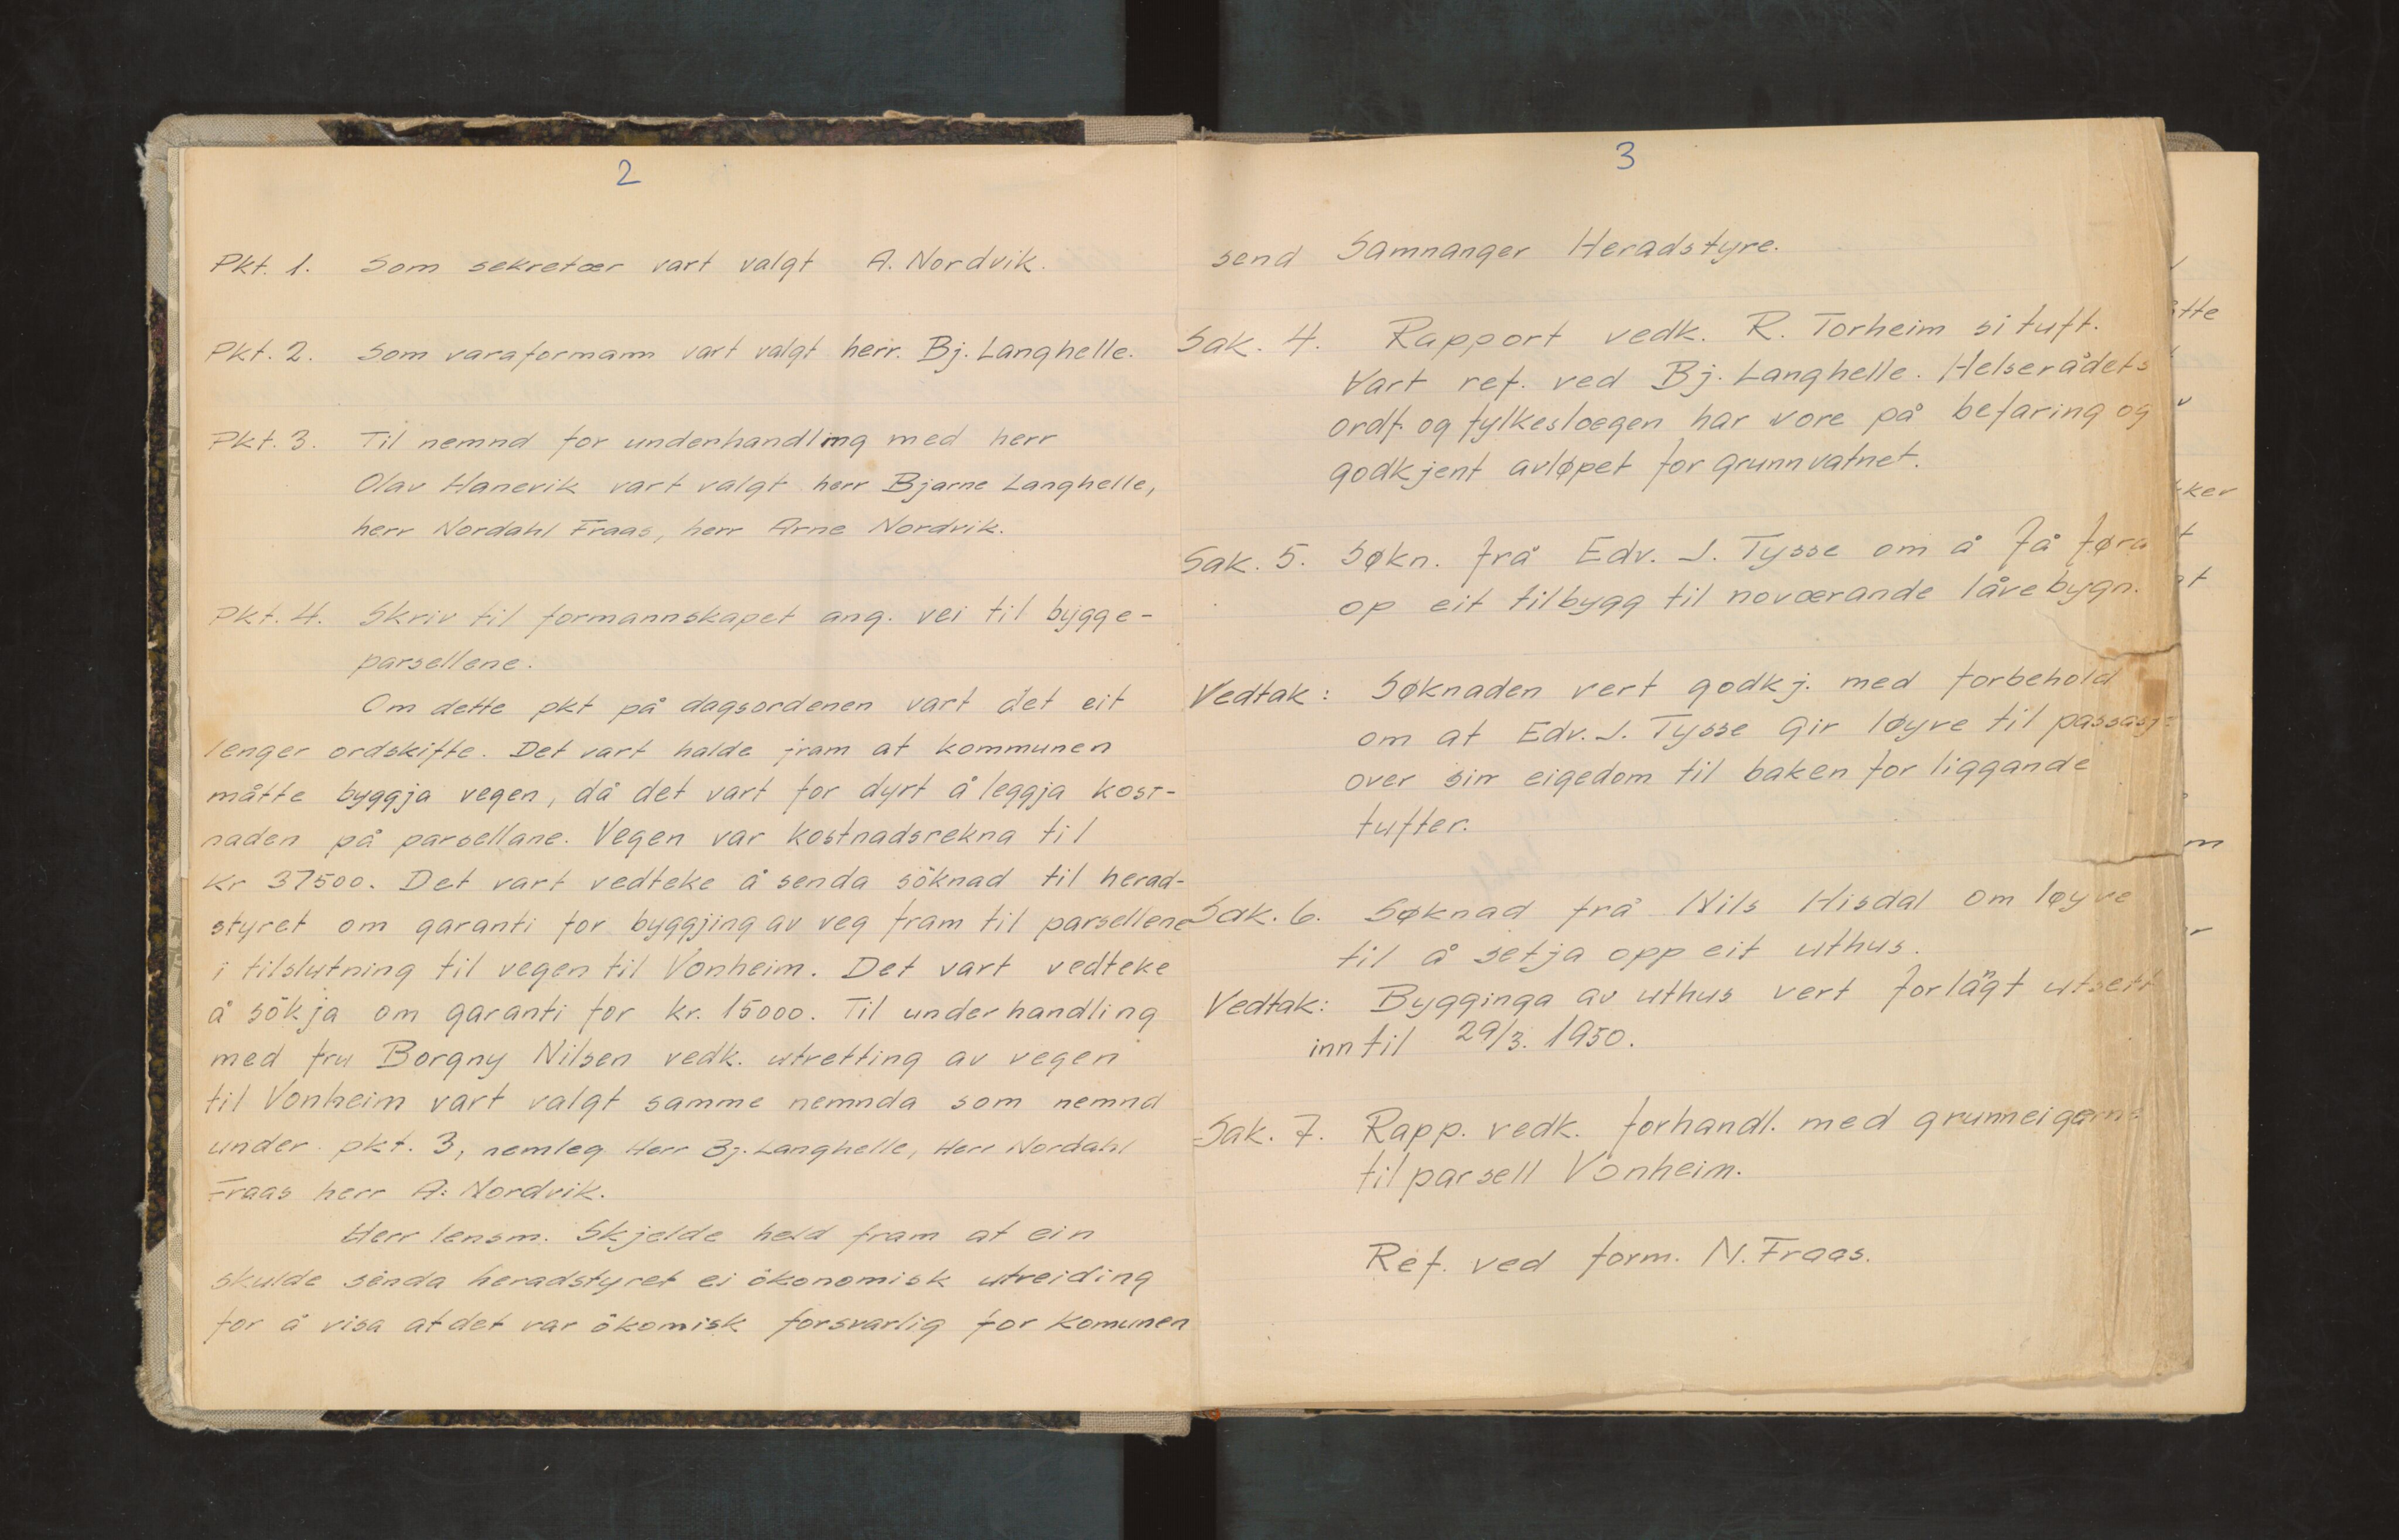 2
Pkt. 1. Som sekretær vart valgt A. Nordvik.
Pkt. 2. Som varaformann vart valgt herr. Bj. Langhelle.
Pkt. 3. Til nemnd for underhandling med herr
Olav Hanevik vart valgt herr Bjarne Langhelle,
herr Nordahl Fraas, herr Arne Nordvik.
Pkt. 4. Skriv til formannskapet ang. vei til bygge-
parsellene.
Om dette pkt på dagsordenen vart det eit
lenger ordskifte. Det vart halde fram at kommunen
måtte byggja vegen, då det vart for dyrt å leggja kost-
naden på parsellane. Vegen var kostnadsrekna til
Kr 37500. Det vart vedteke å senda söknad til herad-
styret om garanti for byggjing av veg fram til parsellene
i tilslutning til vegen til Vonheim. Det vart vedteke
å sökja om garanti for kr. 15000. Til underhandling
med fru Borgny Nilsen vedk. utretting av vegen
til Vonheim vart valgt samme nemnda som nemnd
under pkt. 3, nemleg Herr Bj. Langhelle, Herr Nordahl
Fraas herr A. Nordvik.
Herr lensm. Skjelde held fram at ein
skulde senda heradstyret ei ökonomisk utreiding
for å visa at det var ökomisk forsvarlig for Komunen
3
send Samnanger Heradstyre.
Sak. 4. Rapport vedk. R. Torheim si tuft.
Vart ref. ved Bj. Langhelle. Helserådets
ordf. og fylkeslægen har vore på befaring og
godkjent avløpet for grunnvatnet.
Sak. 5. Søkn. frå Edv. J. Tysse om å få føra
op eit tilbygg til noværande låvebygn.
Vedtak: Søknaden vert godkj. med forbehold
om at Edv. J. Tysse gir løyve til passasje
over sin eigedom til baken for liggande
tufter.
Sak. 6. Søknad frå Nils Hisdal om løyve
til å setja opp eit uthus.
Vedtak: Bygginga av uthus vert forlångt utsett
inntil 29/3. 1950.
Sak. 7. Rapp. vedk. forhandl. med grunneigarne
til parsell Vonheim.
Ref. ved form. N. Fraas.